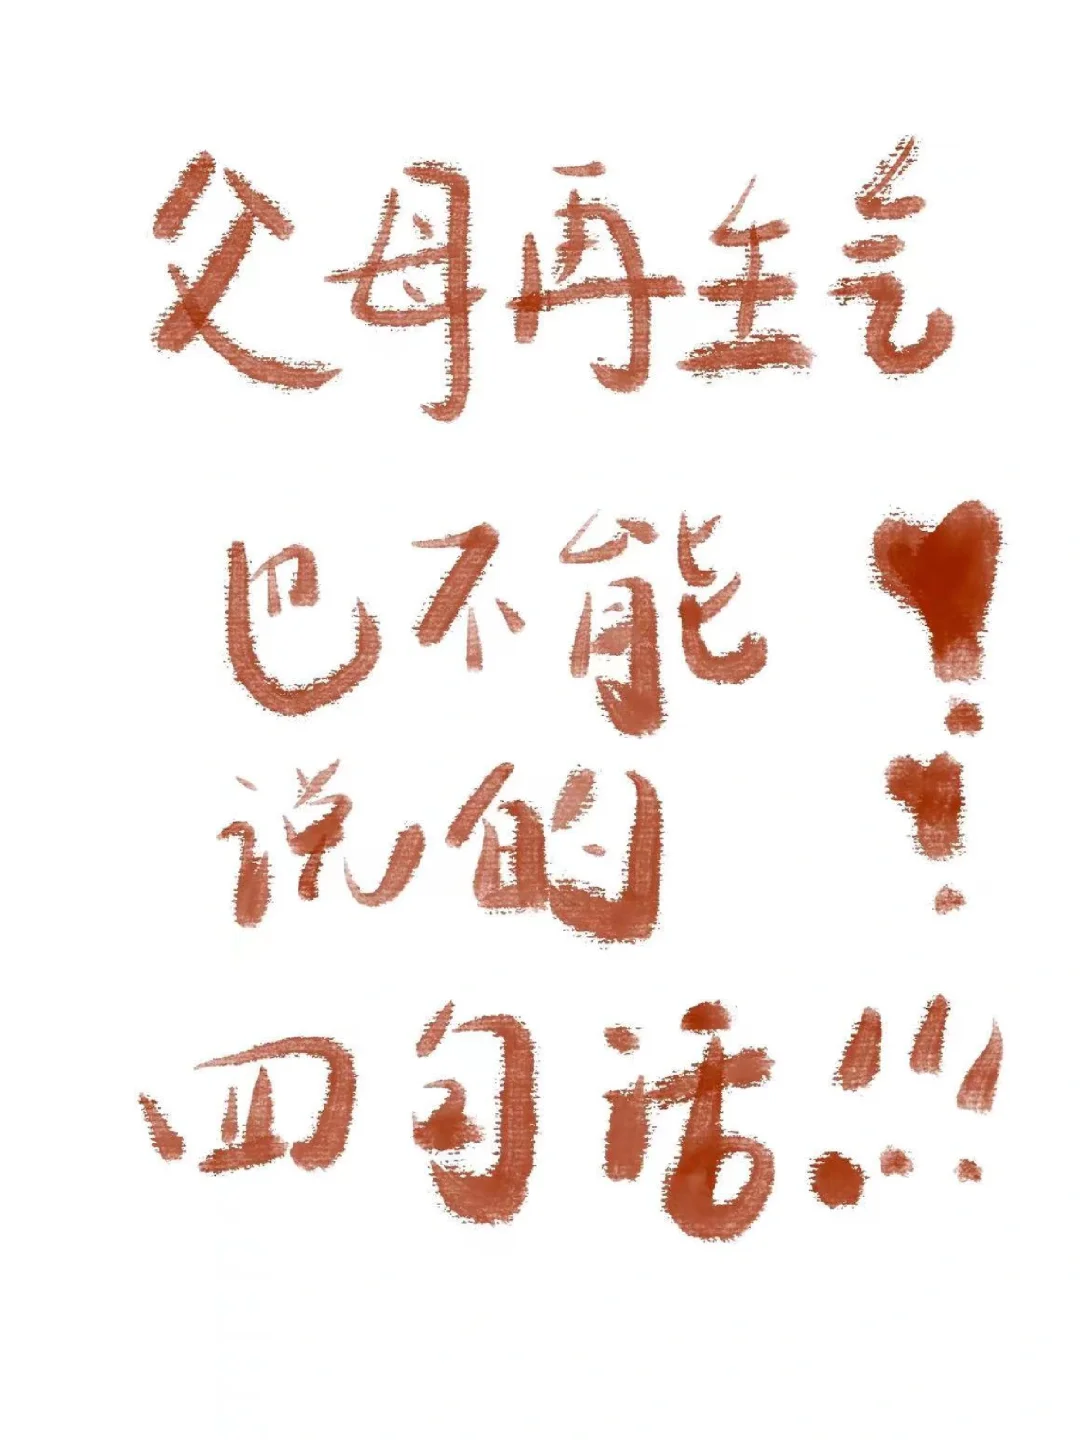 父母再生气
也不能！
说的！
四句话!!!